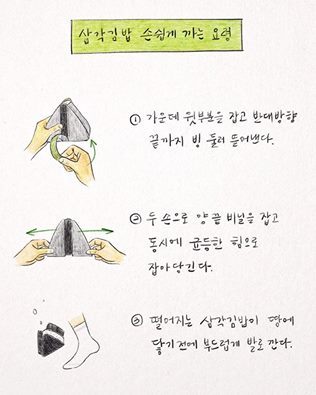 삼각김밥 손쉽게 까는 요령
① 가운데 윗부분을 잡고 반대방향
끝까지 빙 둘러 뜯어낸다.
② 두 손으로 양 끝 비닐을 잡고
동시에 균등한 힘으로
잡아당긴다.
③ 떨어지는 삼각김밥이 땅에
닿기전에 부드럽게 발로 깐다.